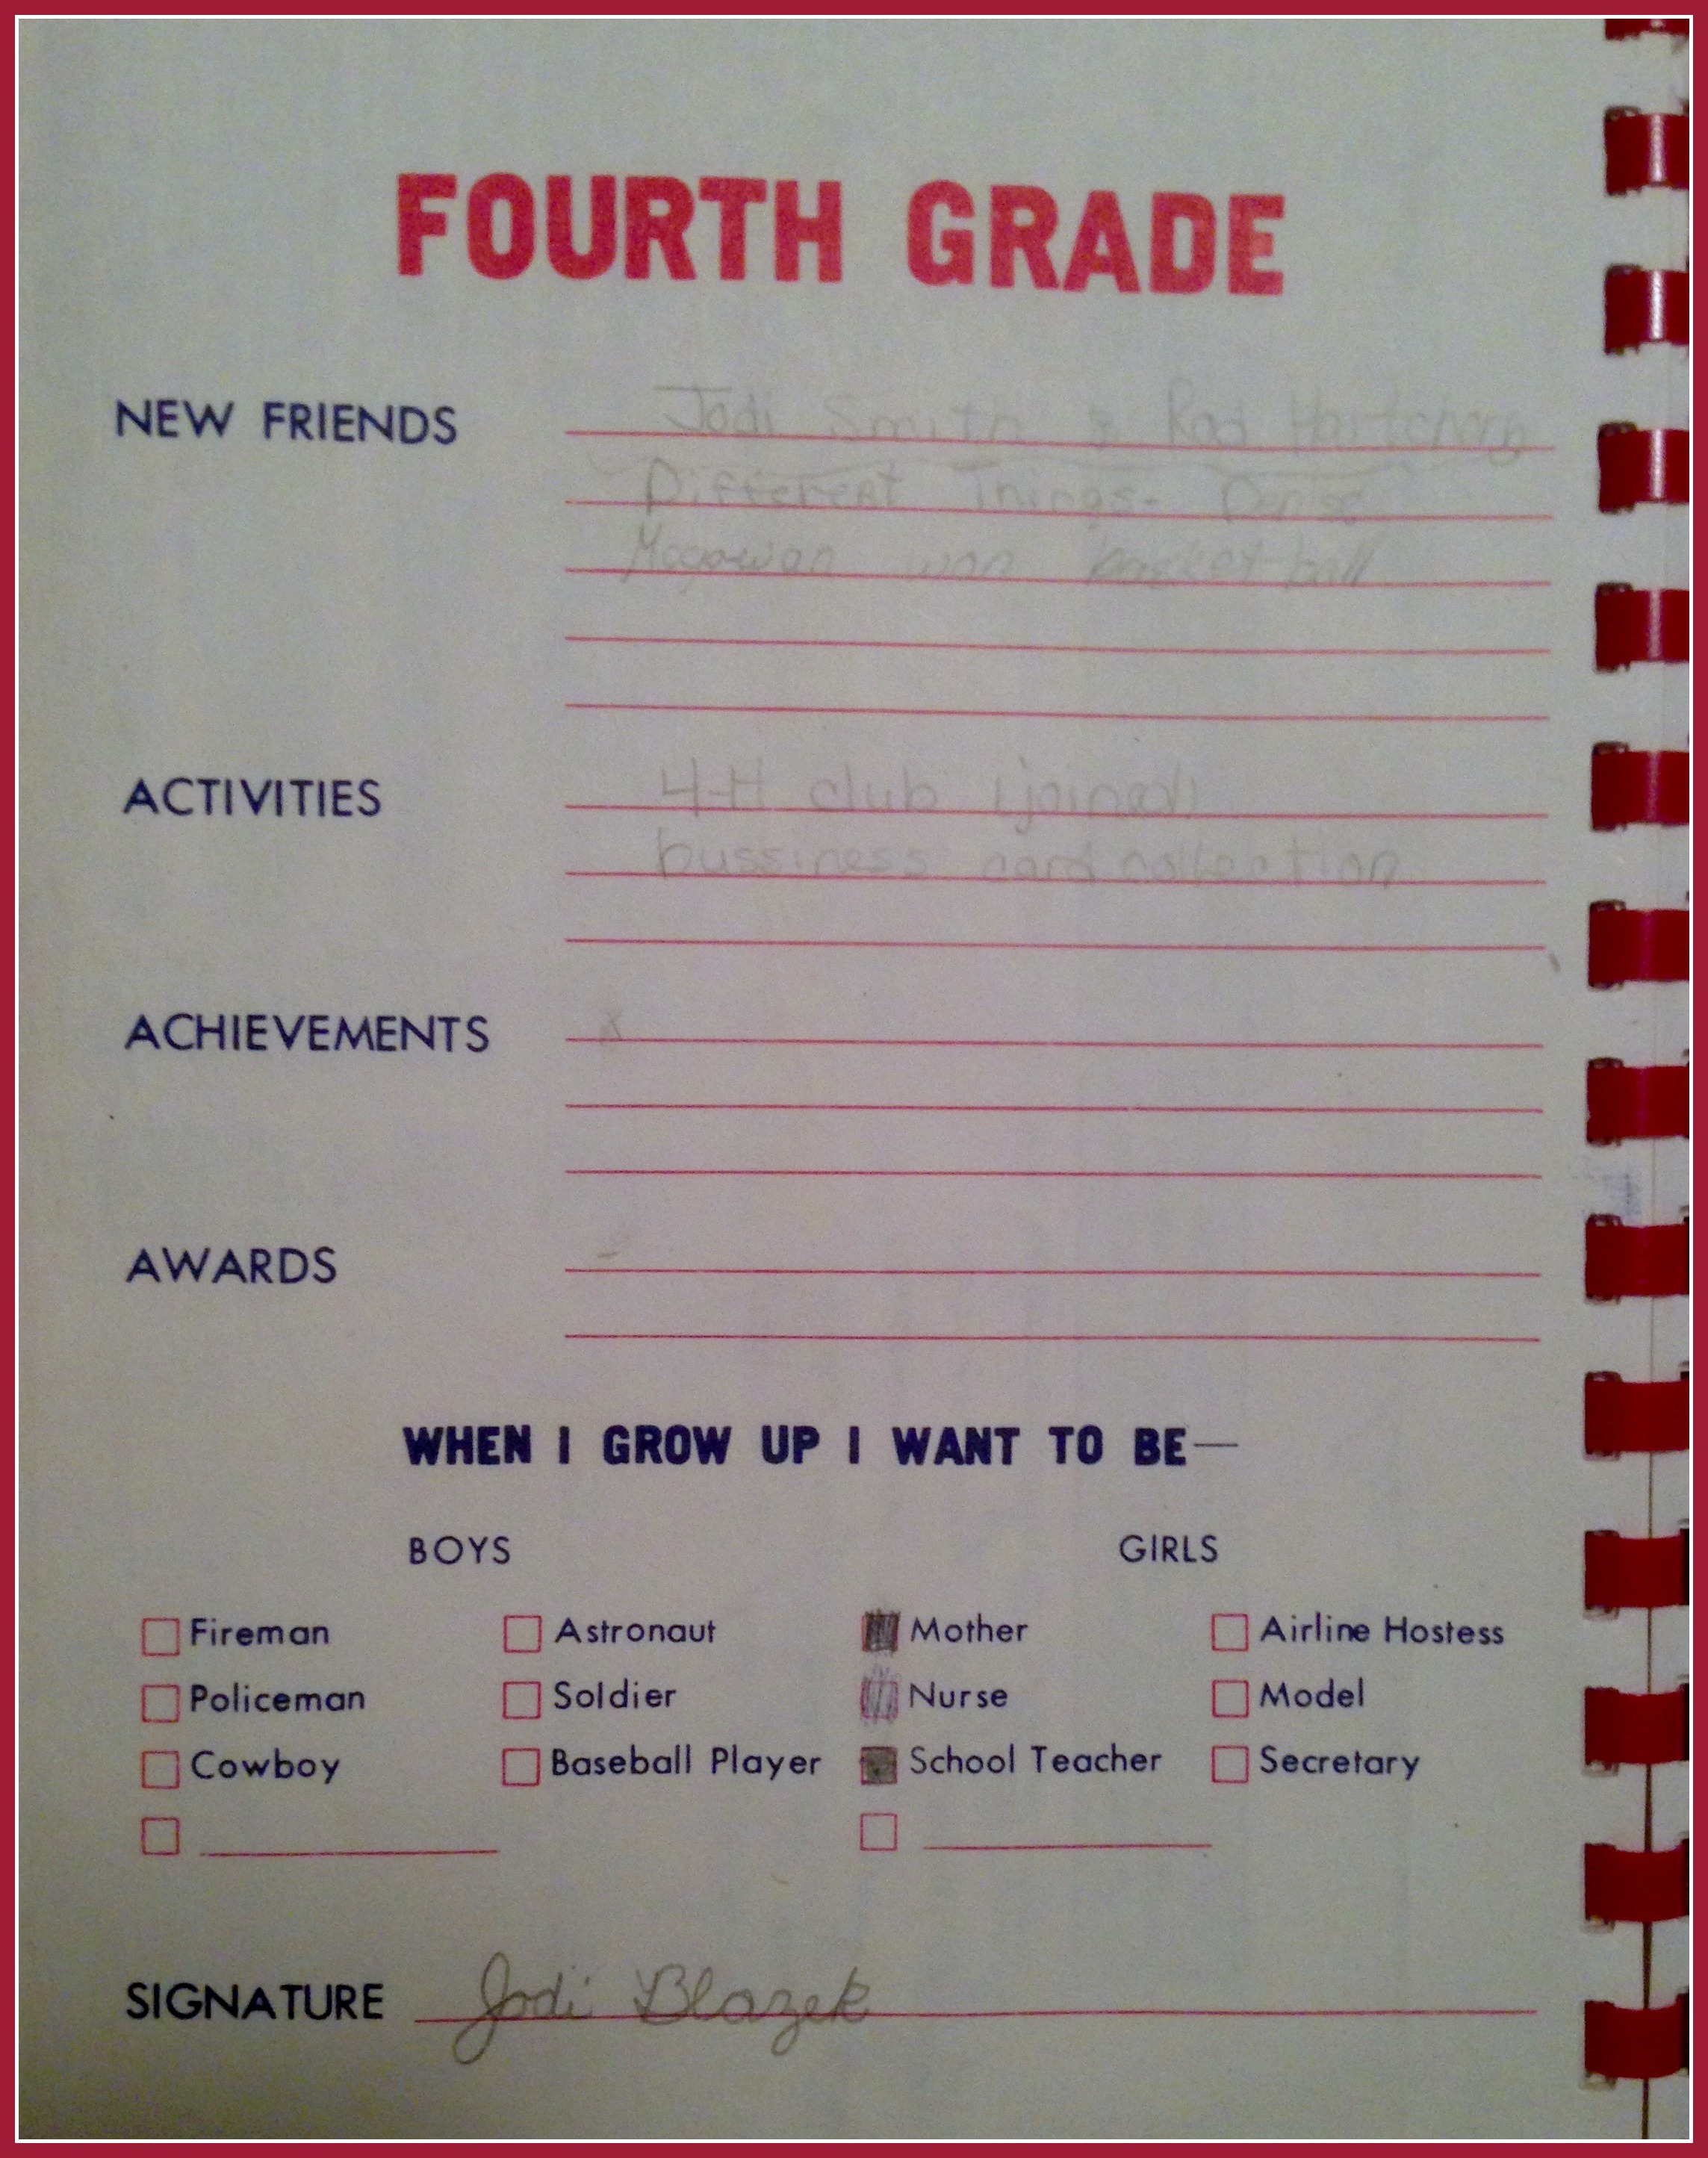 FOURTH GRADE
NEW FRIENDS Jodi Smith & Rod
Different Things- Denise
Mcgowan won basket ball
ACTIVITIES 4-H club (joined)
bussiness card collection
ACHIEVEMENTS x
AWARDS -
WHEN I GROW UP I WANT TO BE—
BOYS GIRLS
Fireman Astronaut Mother Airline Hostess
Policeman Soldier Nurse Model
Cowboy Baseball Player School Teacher Secretary
SIGNATURE Jodi Blazek